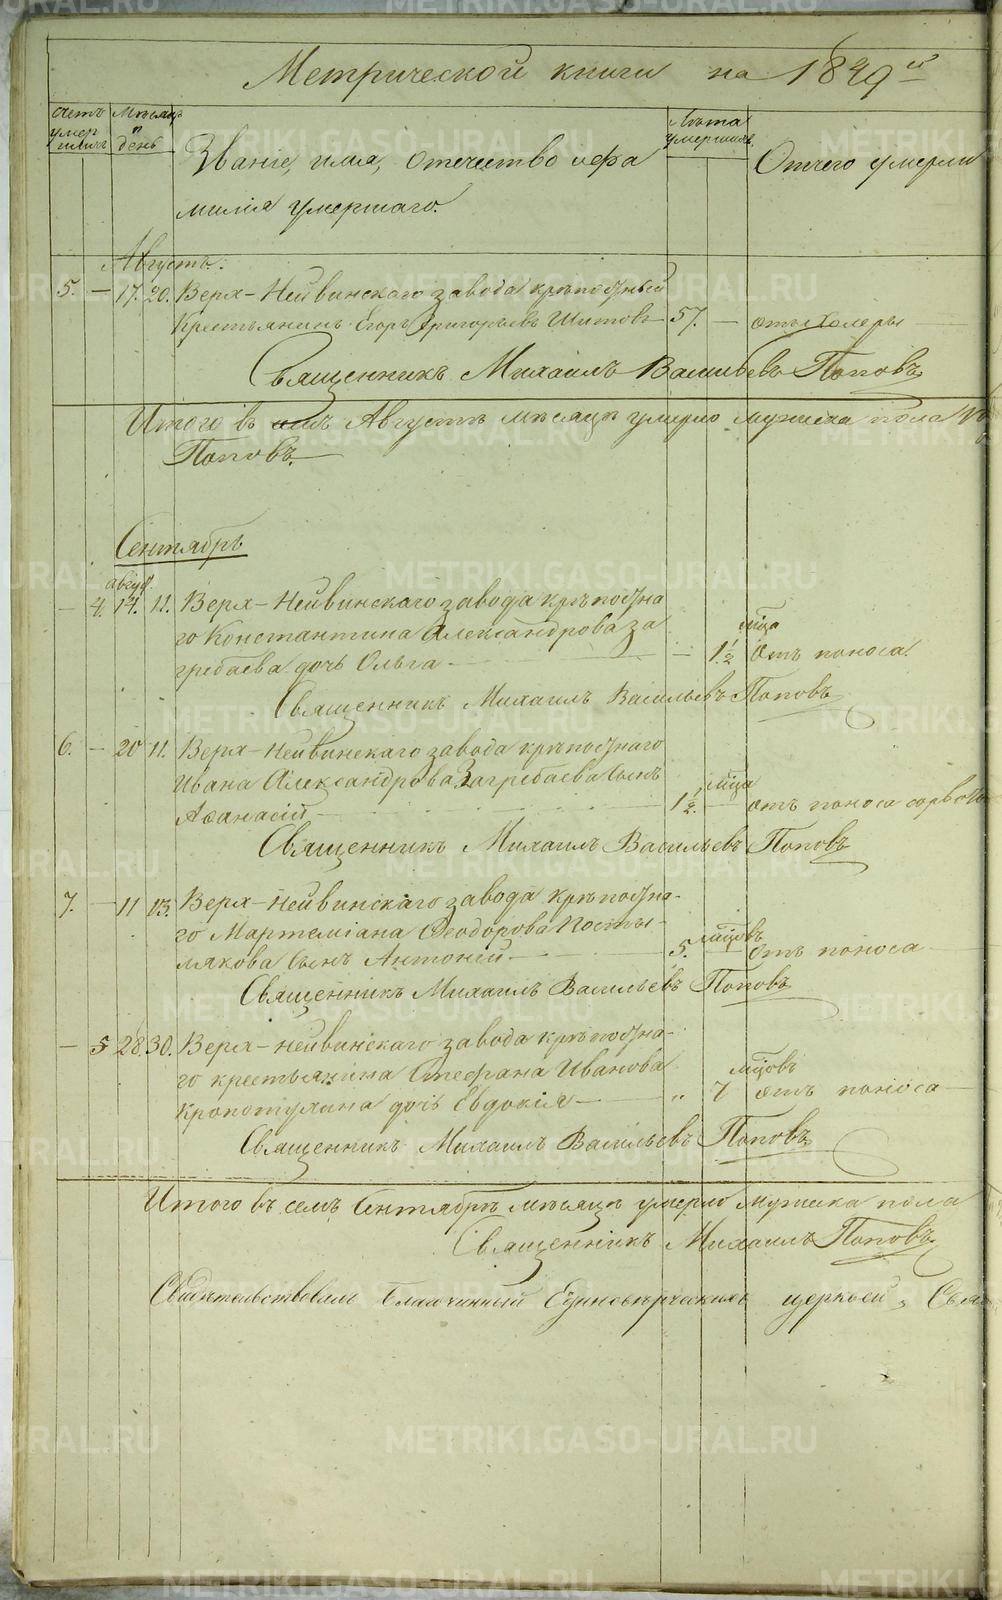 Метрической книги на 1849 й
Счетъ умершихъ
Мѣсяцъ и день
Званіе, имя, отечество и фамилія умершаго.
Лѣта умершихъ
Отчего умерли
Августъ.
5. — 17. 20. Верх-Нейвинскаго завода крѣпостный
Крестьянинъ Егоръ Григорьевъ Шитовъ — 57. — отъ Холеры —
Священникъ Михаилъ Васильевъ Поповъ
Итого въ семъ Августѣ мѣсяцѣ умерло мужеска пола
Поповъ.
Сентябрь
авгус.
— 4. 14. 11. Верх-Нейвинскаго завода крѣпостна
го Константина Александрова За
гребаева дочь Ольга — — 1 1/2 мѣца Отъ поноса.
Священникъ Михаилъ Васильевъ Поповъ
6. — 20 11. Верх-Нейвинскаго завода крѣпостнаго
Ивана Александрова Загребаева Сынъ
Аѳанасій — 1 1/2. мѣца отъ поноса
Священникъ Михаилъ Васильевъ Поповъ
7. — 11 13. Верх-Нейвинскаго завода крѣпостна-
го Мартеміана Ѳеодорова Посты-
лякова Сынъ Антоній — 5. мѣцовъ отъ поноса —
Священникъ Михаилъ Васильевъ Поповъ
— 5 28. 30. Верх-нейвинскаго завода крѣпостна-
го крестьянина Стефана Иванова
Кропотухина дочь Евдокія — „ 7 мѣцовъ отъ поноса —
Священникъ Михаилъ Васильевъ Поповъ
Итого въ семъ Сентябрѣ мѣсяцѣ умерло мужеска пола
Священникъ Михаилъ Поповъ
Свидѣтельствовалъ Благочинный Единовѣрческихъ церквей,
METRIKI.GASO-URAL.RU